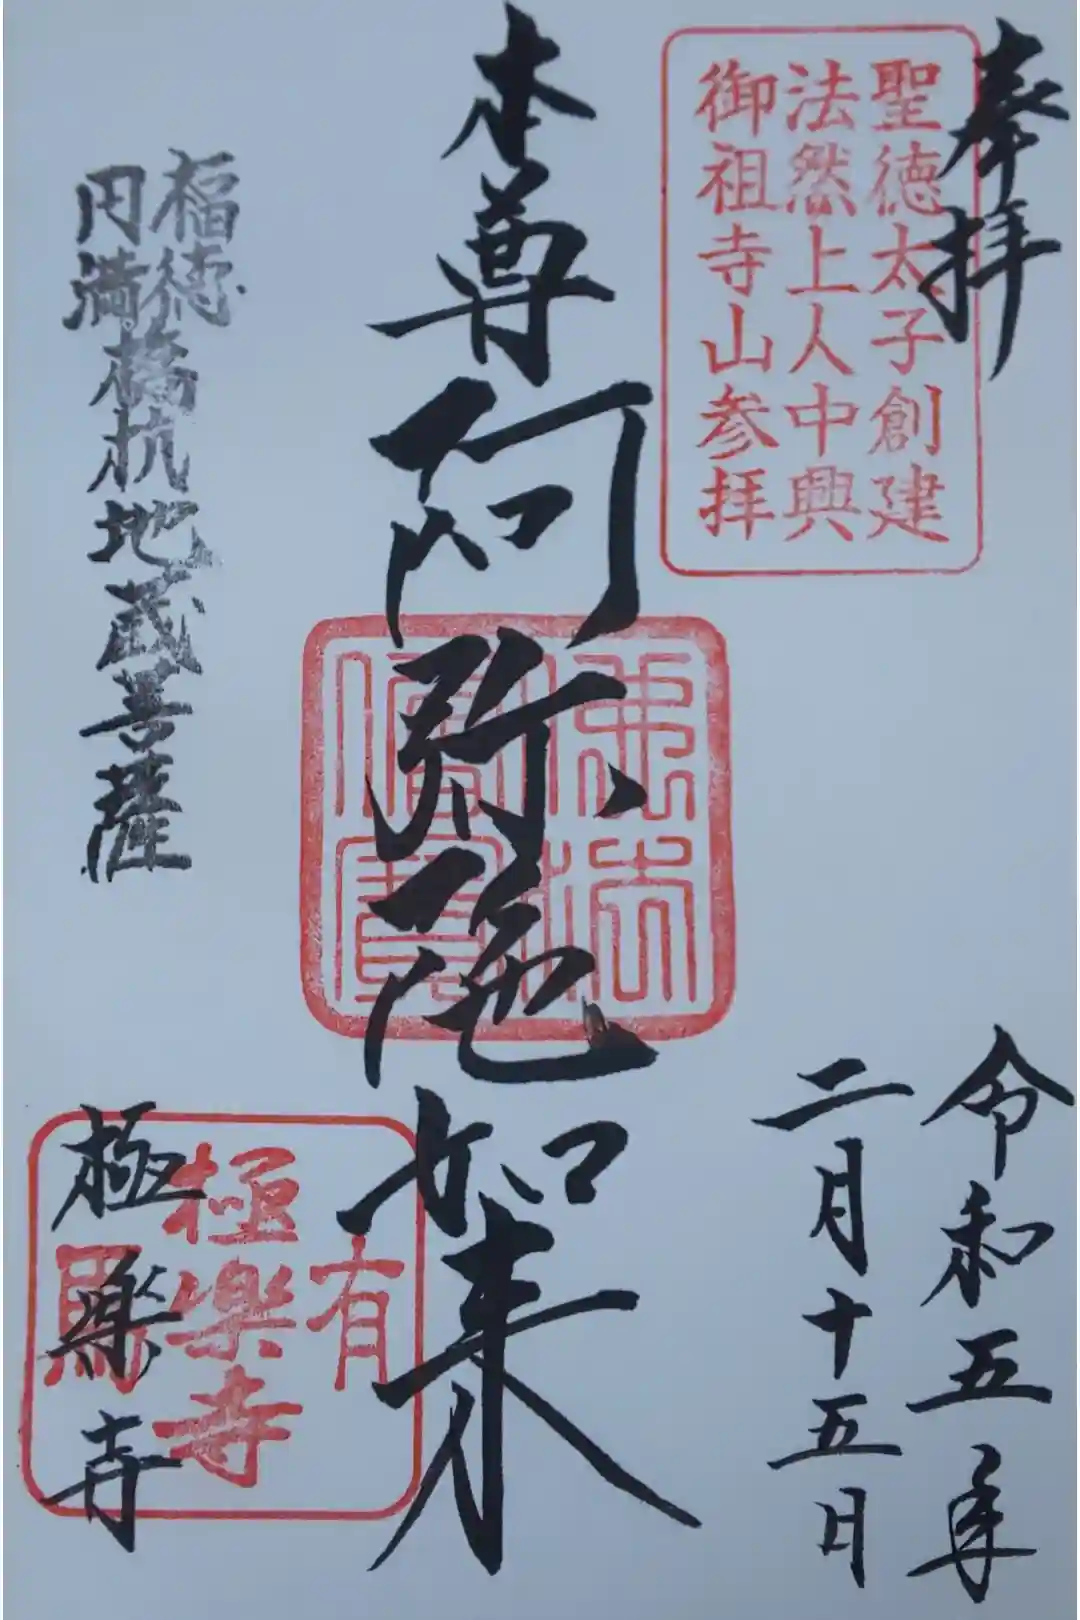 奉拝
聖徳太子創建
法然上人中興
御祖寺山参拝
令和五年
二月十五日
本尊阿弥陀如来
佛法
僧寶
福徳
円満
橋杭地蔵菩薩
有
極樂寺
馬
極楽寺